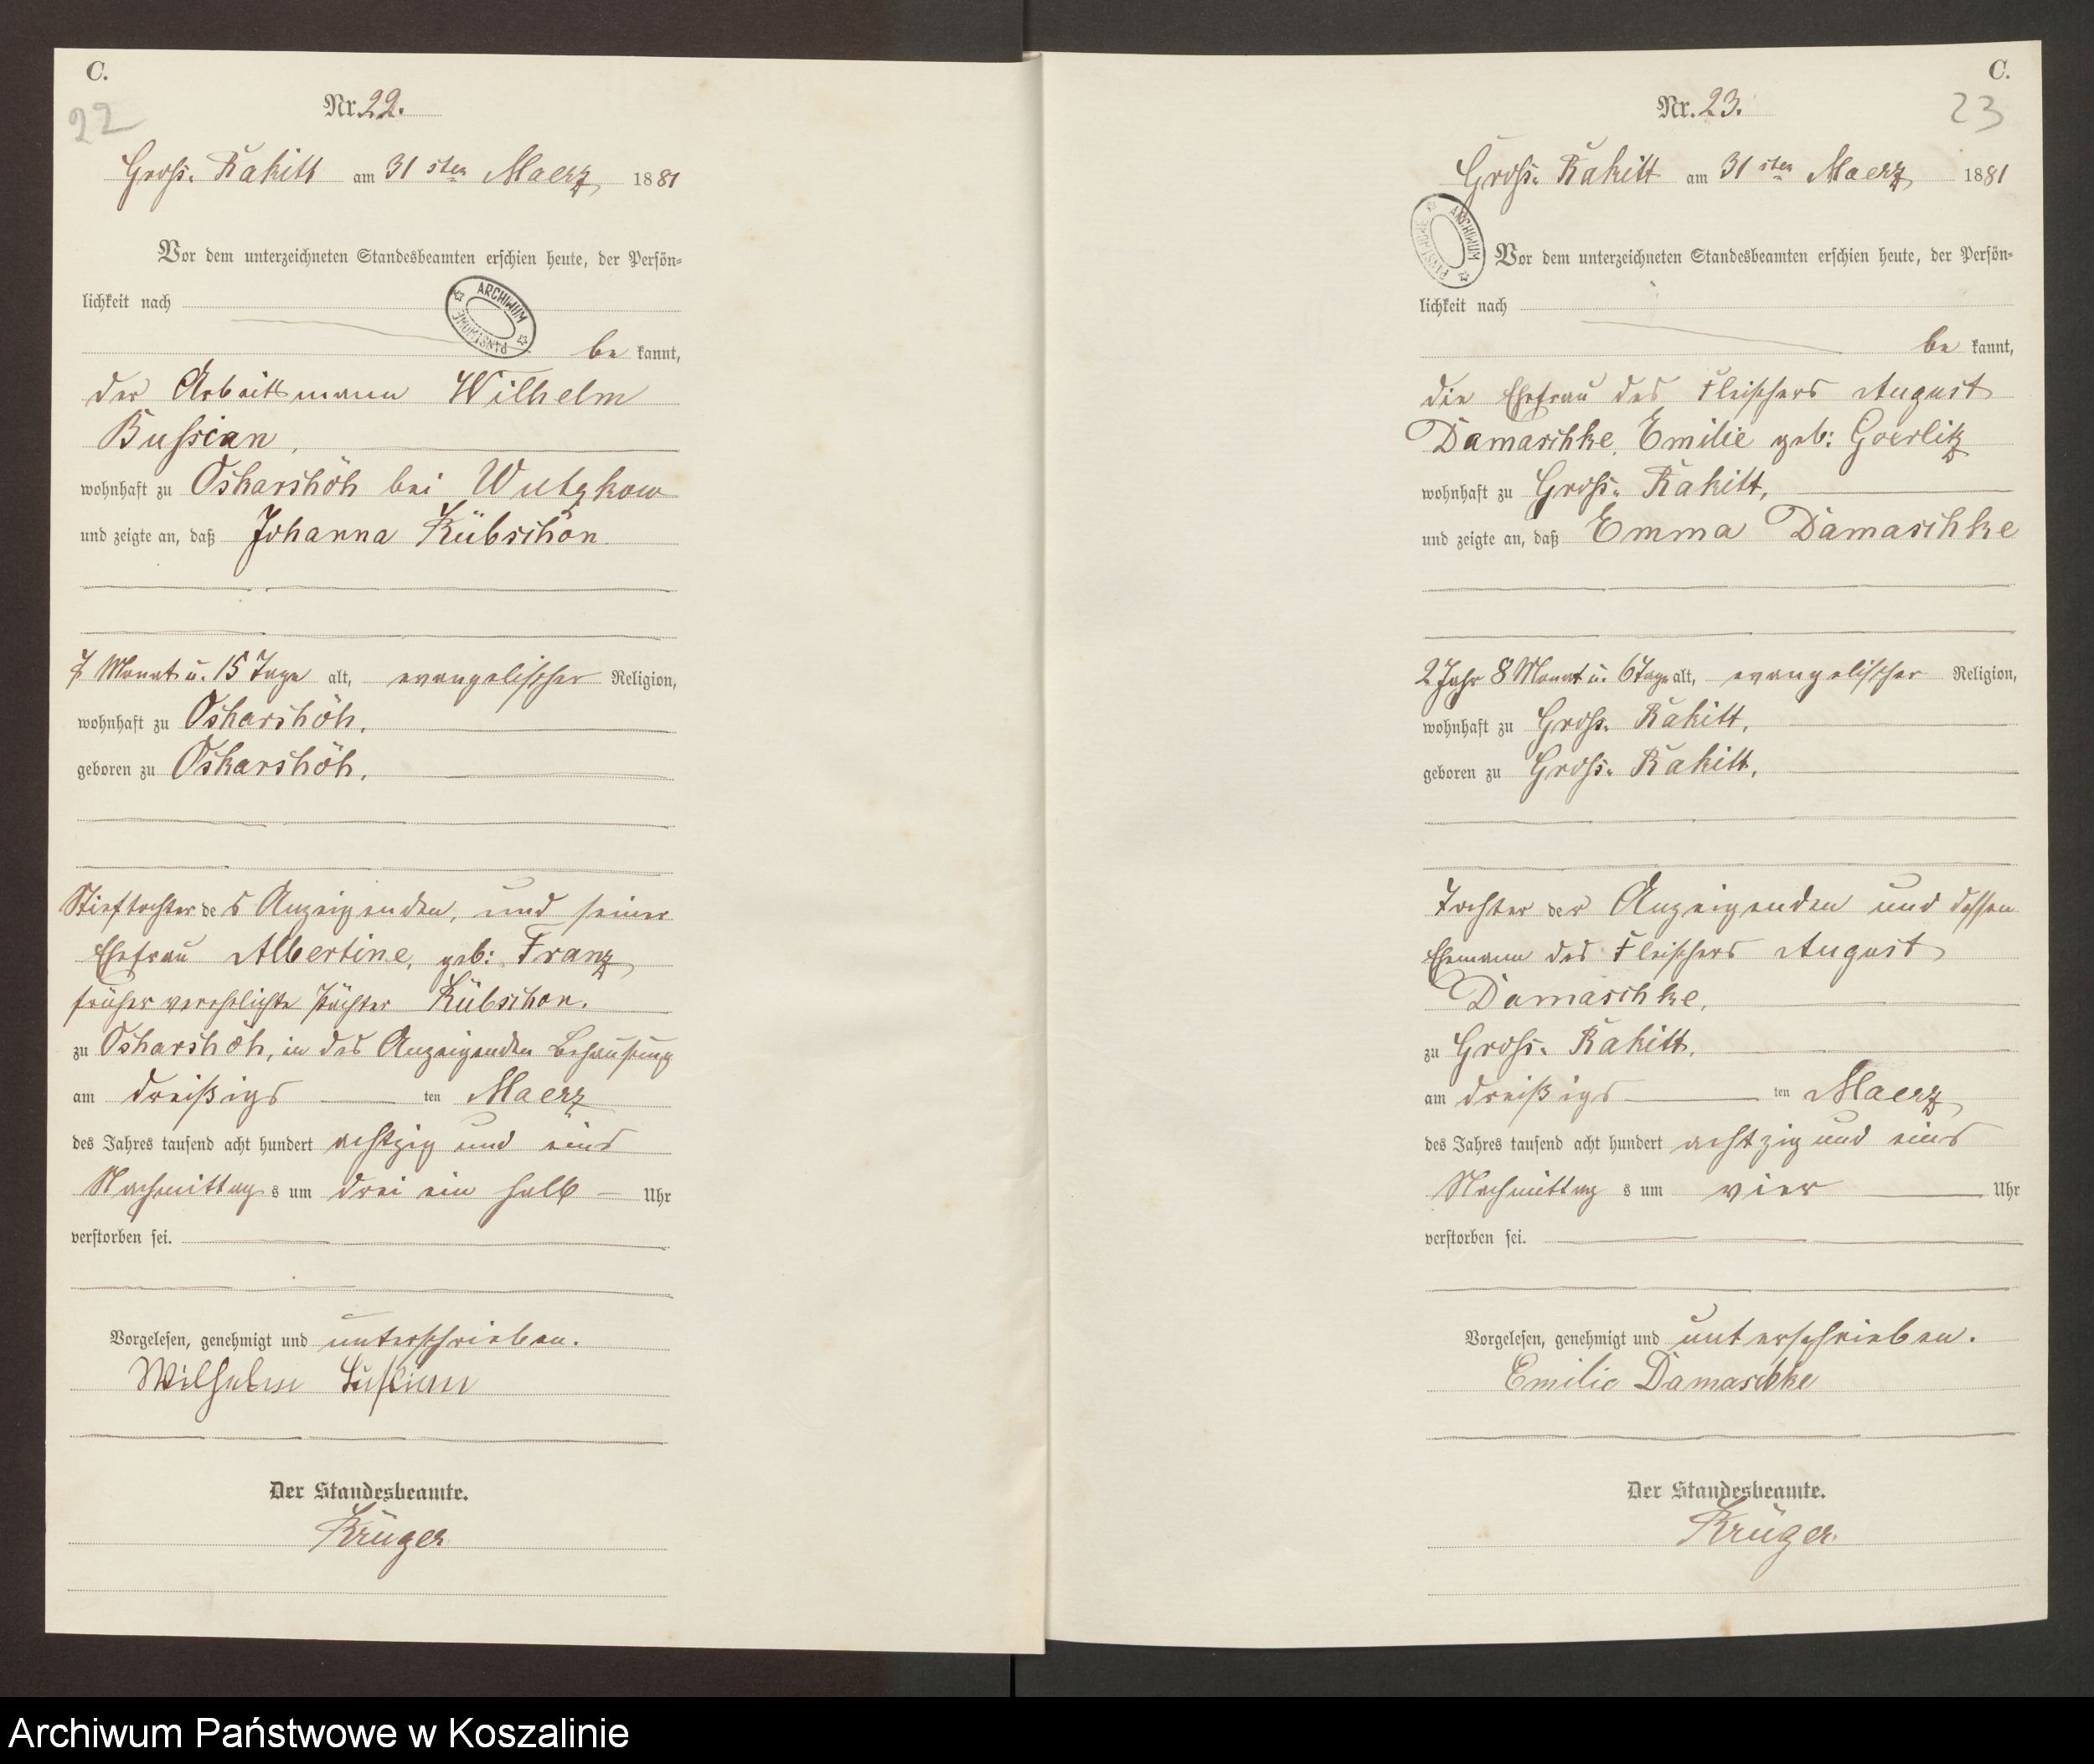 C.
22
Nr. 22.
Gross. Rakitt am 31 sten Maerz 1881
Vor dem unterzeichneten Standesbeamten erschien heute, der Persön-
lichkeit nach
ARCHIWUM PAŃSTWOWE
be kannt,
der Arbeitsmann Wilhelm
Bussian,
wohnhaft zu Oskarshöh bei Wutzkow
und zeigte an, daß Johanna Kübschön
7 Monat u. 15 Tage alt, evangelischer Religion,
wohnhaft zu Oskarshöh,
geboren zu Oskarshöh,
Stieftochter des Anzeigenden, und seiner
Ehefrau Albertine, geb: Franz
früher verehelichte Kübschon.
zu Oskarshöh, in des Anzeigenden Behausung
am dreißigs ten Maerz
des Jahres tausend acht hundert achtzig und eins
Nachmittag s um drei ein halb Uhr
verstorben sei.
Vorgelesen, genehmigt und unterschrieben.
Wilhelm Bussian
Der Standesbeamte.
Krüger
C.
23
Nr. 23.
Gross. Rakitt am 31 sten Maerz 1881
ARCHIWUM PAŃSTWOWE
Vor dem unterzeichneten Standesbeamten erschien heute, der Persön-
lichkeit nach
be kannt,
die Ehefrau des Fleischers August
Damaschke, Emilie geb: Goerlitz
wohnhaft zu Gross. Rakitt,
und zeigte an, daß Emma Damaschke
2 Jahr 8 Monat u. 6 Tage alt, evangelischer Religion,
wohnhaft zu Gross. Rakitt,
geboren zu Gross. Rakitt,
Tochter der Anzeigenden und dessen
Ehemann des Fleischers August
Damaschke,
zu Gross. Rakitt,
am dreißigs ten Maerz
des Jahres tausend acht hundert achtzig und eins
Nachmittag s um vier Uhr
verstorben sei.
Vorgelesen, genehmigt und unterschrieben.
Emilie Damaschke
Der Standesbeamte.
Krüger.
Archiwum Państwowe w Koszalinie